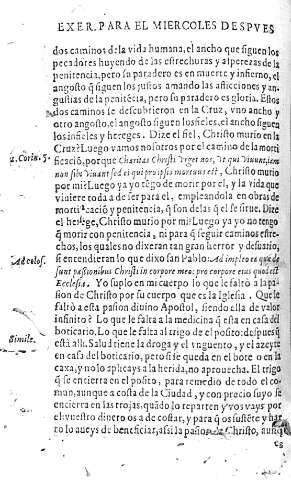 EXER. PARA EL MIERCOLES DESPVES
dos caminos de la vida humana, el ancho que siguen los
pecadores huyendo de las estrechuras y asperezas de la
penitencia, pero su paradero es en muerte y infierno, el
angosto q̃ siguen los justos amando las aflicciones y an-
gustias de la penitẽcia, pero su paradero es gloria. Estos
dos caminos se descubrieron en la Cruz, vno ancho y
otro angosto. el angosto siguen los fieles. el ancho siguen
los infieles y hereges. Dize el fiel, Christo murio en la
Cruz? Luego vamos nosotros por el camino de la morti
2. Corin. 5.
ficació, porque Charitas Christi vrget nos, vt qui viuunt, iam
non sibi viuant sed ei qui pro ipsis mortuus est, Christo murio
por mi? Luego ya yo tẽgo de morir por el, y la vida que
viuiere toda a de ser para el, empleandola en obras de
mortificació y penitencia, q̃ son de las q̃ el se sirue. Dize
el herege, Christo murio por mi? Luego ya yo no tengo
q̃ morir con penitencia, ni para q̃ seguir caminos estre-
chos, los quales no dixeran tan gran herror y desuario,
si entendieran lo que dixo san Pablo: Ad impleo ea que de
Ad colos.
sunt passionibus Christi in corpore meo: pro corpore eius quod est
Ecclesia. Yo suplo en mi cuerpo lo que le faltò a la pa-
sion de Christo por su cuerpo que es la Iglesia. Que le
faltò a esta pasion diuino Apostol, siendo ella de valor
infinito? Lo que le falta a la medicina q̃ esta en casa del
boticario. Lo que le falta al trigo de el posito: despues q̃
Simile.
està alli. Salud tiene la droga y el vnguento, y el azeyte
en casa del boticario, pero si se queda en el bote o en la
caxa, y no lo aplicays a la herida, no aprouecha. El trigo
q̃ se encierra en el posito, para remedio de todo el co-
mun, aunque a costa de la Ciudad, y con precio suyo se
encierra en las trojas, quãdo lo reparten y vos vays por
el vuestro dinero os a de costar, y para q̃ os sustẽte y har
to lo aueys de beneficiar, assi la pasiõ de Christo, aunq̃
es